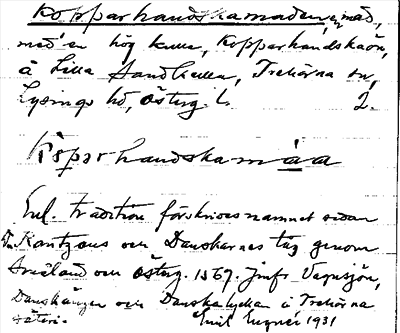 Kopparhandskamaden, mad,
med en hög kulle, Kopparhandskaön,
å Lilla Sandkullen, Trehörna sn,
Lysings hd, Österg. l. 2.
Köparhandskamáa
Enl. tradition förskrives namnet sedan
Rantzaus och Danskarnes tåg genom
Småland och Österg. 1567. Jmfr Vapnsjön,
Danskängen och Danskalyckan å Trehörna
säteri. Emil Engnér 1931